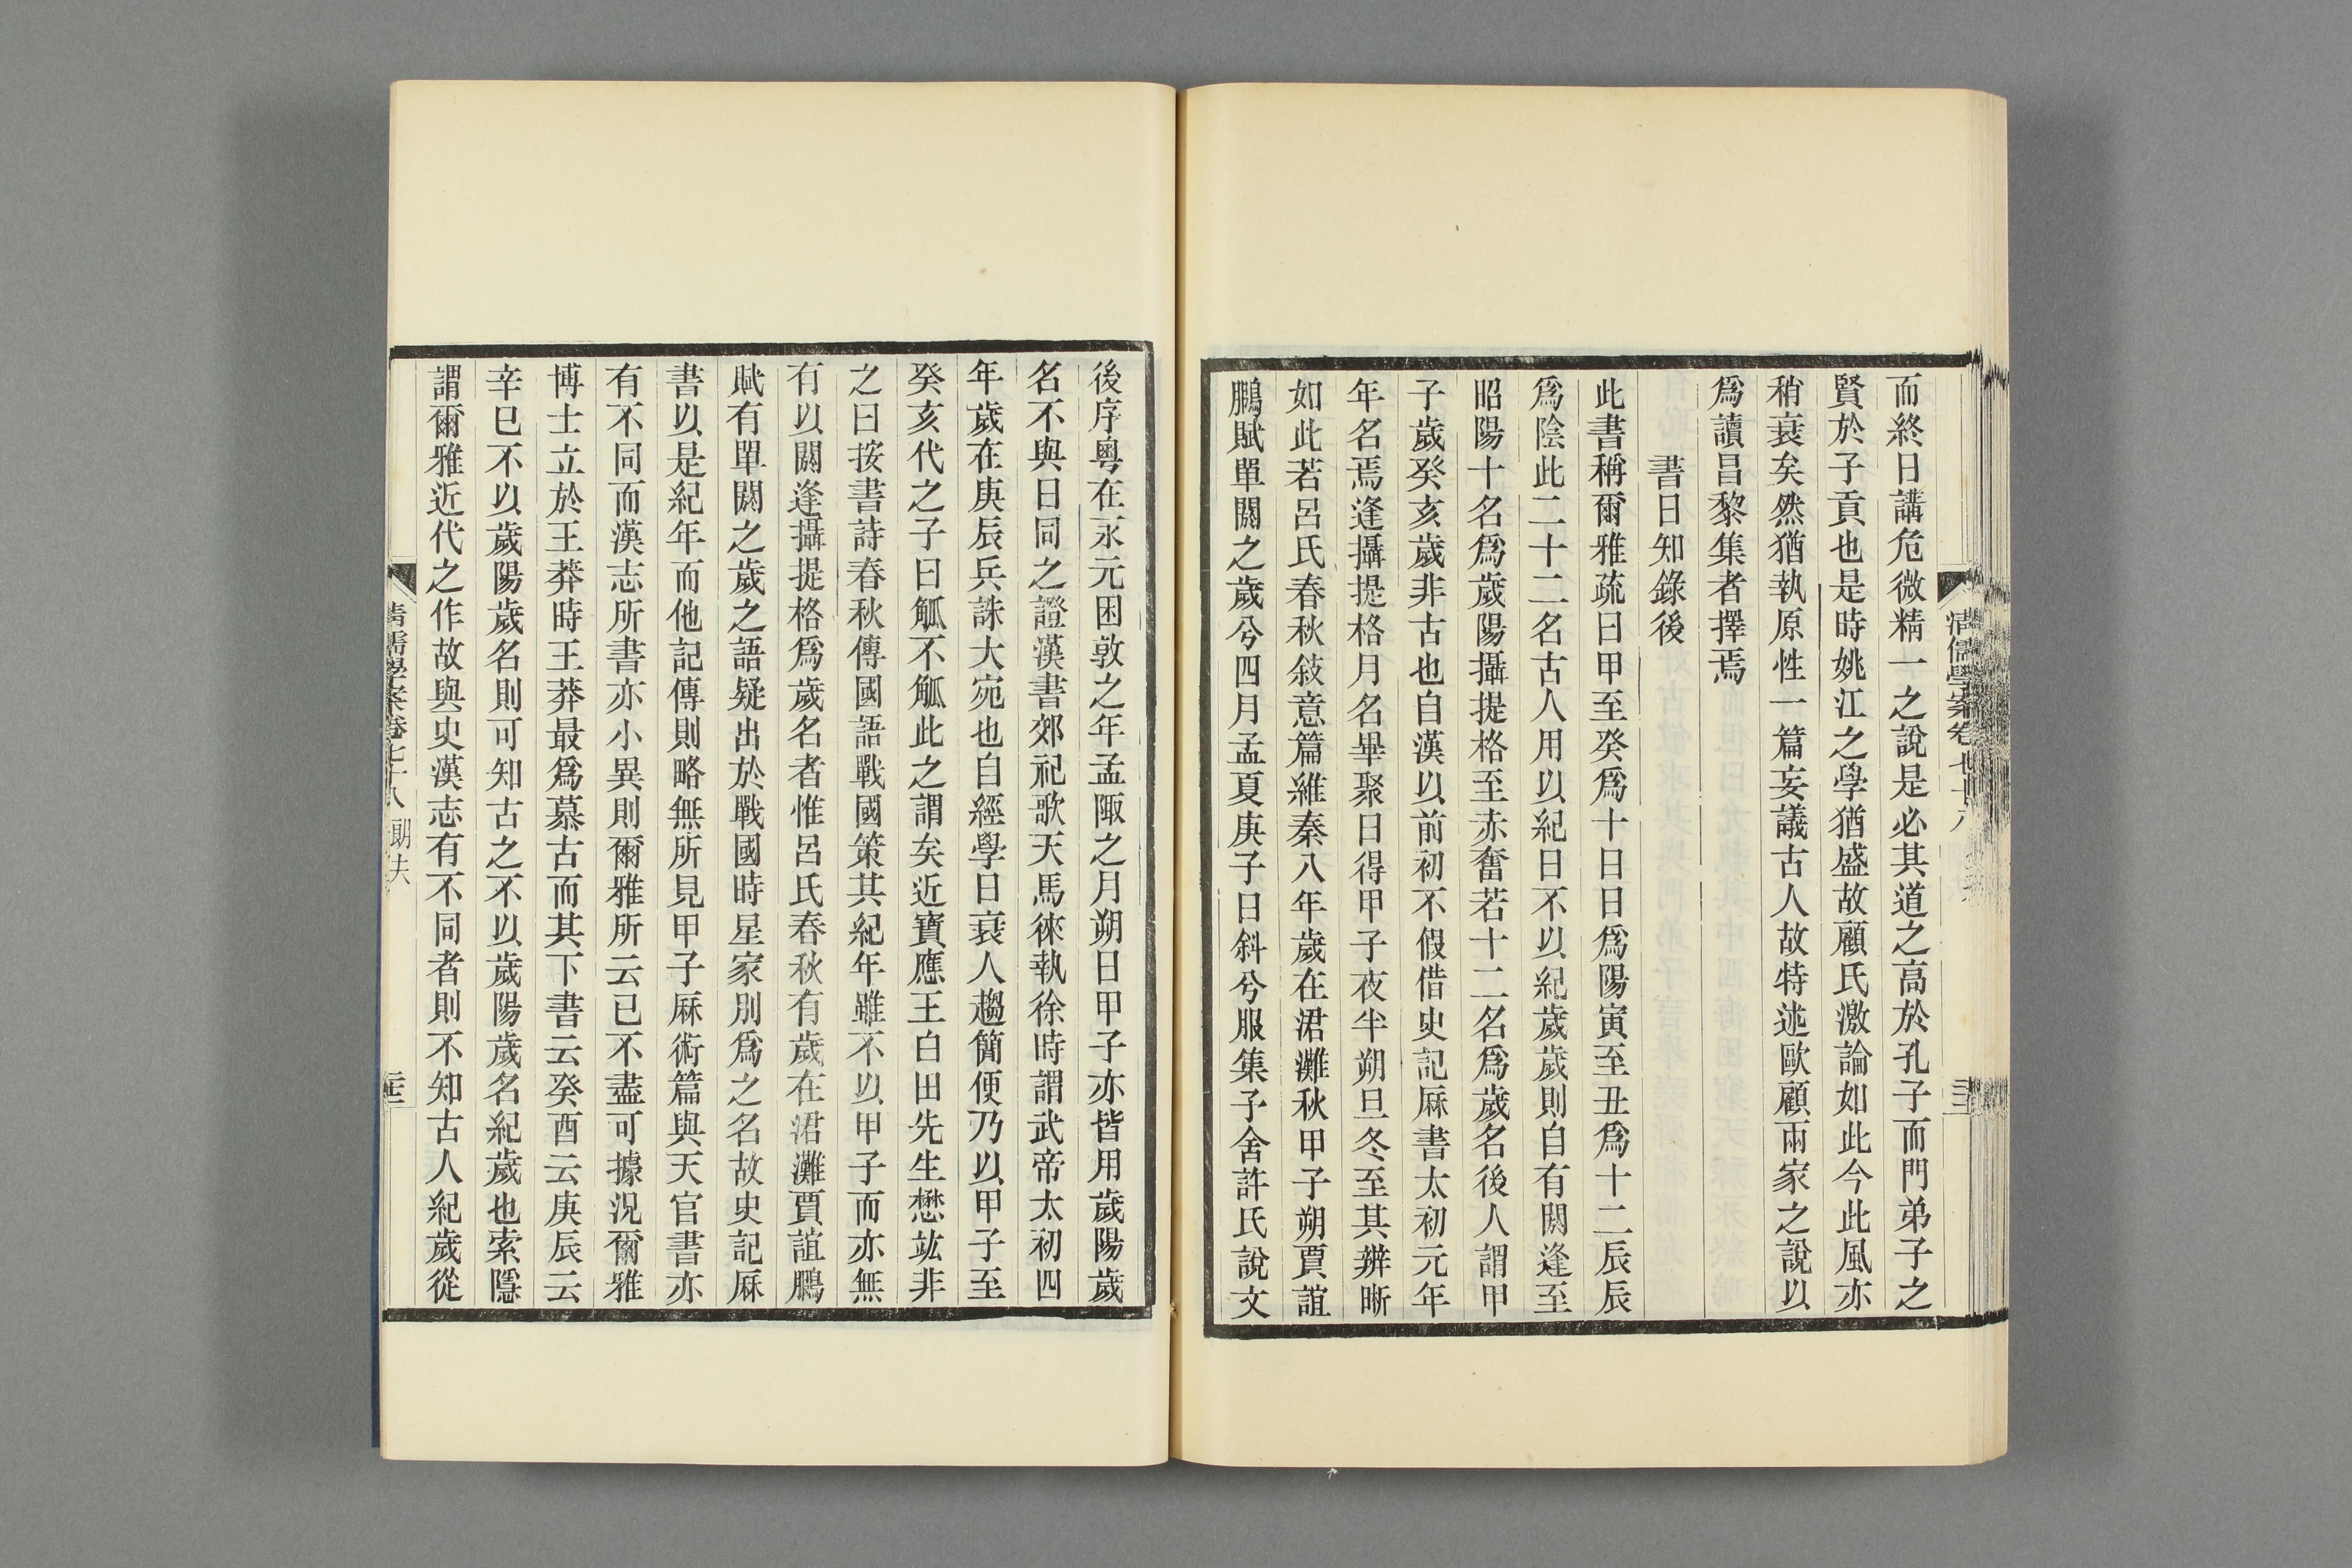 而終日講危微精一之說是必其道之高於孔子而門弟子之
賢於子貢也是時姚江之學猶盛故顧氏激論如此今此風亦
稍衰矣然猶執原性一篇妄議古人故特述歐顧兩家之說以
爲讀昌黎集者擇焉
書日知錄後
此書稱爾雅疏曰甲至癸爲十日日爲陽寅至丑爲十二辰辰
爲陰此二十二名古人用以紀日不以紀歲歲則自有閼逢至
昭陽十名爲歲陽攝提格至赤奮若十二名爲歲名後人謂甲
子歲癸亥歲非古也自漢以前初不假借史記厤書太初元年
年名焉逢攝提格月名畢聚日得甲子夜半朔旦冬至其辨晰
如此若呂氏春秋敍意篇維秦八年歲在涒灘秋甲子朔賈誼
鵩賦單閼之歲兮四月孟夏庚子日斜兮服集予舍許氏說文
後序粵在永元困敦之年孟陬之月朔日甲子亦皆用歲陽歲
名不與日同之證漢書郊祀歌天馬徠執徐時謂武帝太初四
年歲在庚辰兵誅大宛也自經學日衰人趨簡便乃以甲子至
癸亥代之子曰觚不觚此之謂矣近寶應王白田先生懋竑非
之曰按書詩春秋傳國語戰國策其紀年雖不以甲子而亦無
有以閼逢攝提格爲歲名者惟呂氏春秋有歲在涒灘賈誼鵩
賦有單閼之歲之語疑出於戰國時星家別爲之名故史記厤
書以是紀年而他記傳則略無所見甲子厤術篇與天官書亦
有不同而漢志所書亦小異則爾雅所云已不盡可據況爾雅
博士立於王莽時王莽最爲慕古而其下書云癸酉云庚辰云
辛巳不以歲陽歲名則可知古之不以歲陽歲名紀歲也索隱
謂爾雅近代之作故與史漢志有不同者則不知古人紀歲從
清儒學案卷七十八 朗夫